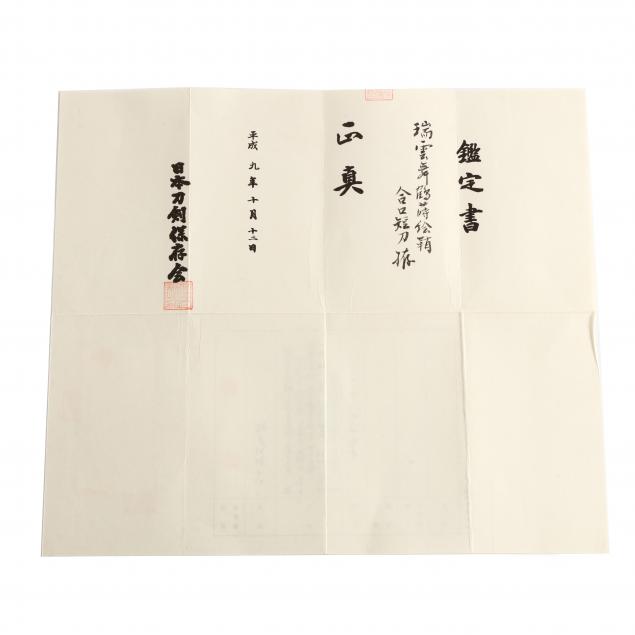 鑑定書
瑞雲舞鶴蒔絵鞘
合口短刀拵
正真
平成九年十月十二日
日本刀剣保存会